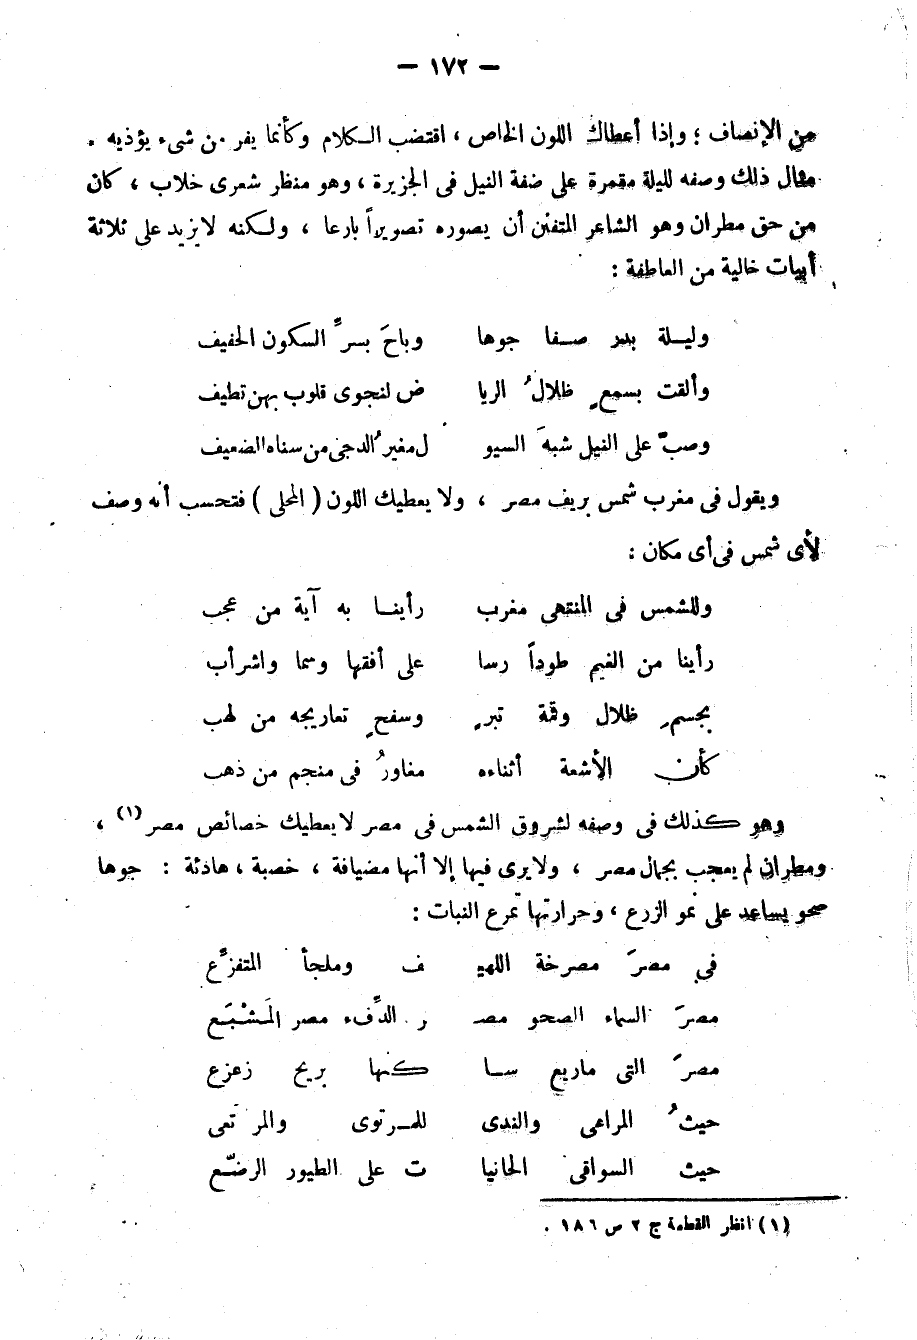 — ١٧٢ —
من الإنصاف ؛ وإذا أعطاك اللون الخاص ، اقتضب الكلام وكأنما يفر من شىء يؤذيه .
مثال ذلك وصفه لليلة مقمرة على ضفة النيل فى الجزيرة ، وهو منظر شعرى خلاب ، كان
من حق مطران وهو الشاعر المتفنن أن يصوره تصويراً بارعا ، ولكنه لا يزيد على ثلاثة
أبيات خالية من العاطفة :
وليلة بدر صفا جوها وباحَ بسرِّ السكون الحفيف
وألقت بسمعٍ ظلالُ الريا ض لنجوى قلوب بهن تطيف
وصبّ على النيل شبهَ السيو ل مغيرُ الدجى من سناه الضعيف
ويقول فى مغرب شمس بريف مصر ، ولا يعطيك اللون ( المحلى ) فتحسب أنه وصف
لأى شمس فى أى مكان :
وللشمس فى المنتهى مغرب رأينا به آية من عجب
رأينا من الغيم طوداً رسا على أفقها وسما واشرأب
بجسمِ ظلال وقمة تبرٍ وسفحٍ تعاريجه من لهب
كأن الأشعة أثناءه مغاورُ فى منجم من ذهب
وهو كذلك فى وصفه لشروق الشمس فى مصر لا يعطيك خصائص مصر (١) ،
ومطران لم يعجب بجمال مصر ، ولا يرى فيها إلا أنها مضيافة ، خصبة ، هادئة : جوها
صحو يساعد على نمو الزرع ، وحرارتها تمرع النبات :
فى مصرَ مصرخة اللهيـ ـف وملجأ المتفزِّع
مصرَ السماء الصحو مصـ ـر الدِّفء مصر المَشْبَع
مصرَ التى ماريع سا كنها بريح زعزع
حيثُ المراعى والندى للمرتوى والمرتعى
حيث السواقى الحانيا ت على الطيور الرضّع
(١) انظر القطعة ج ٢ ص ١٨٦ .